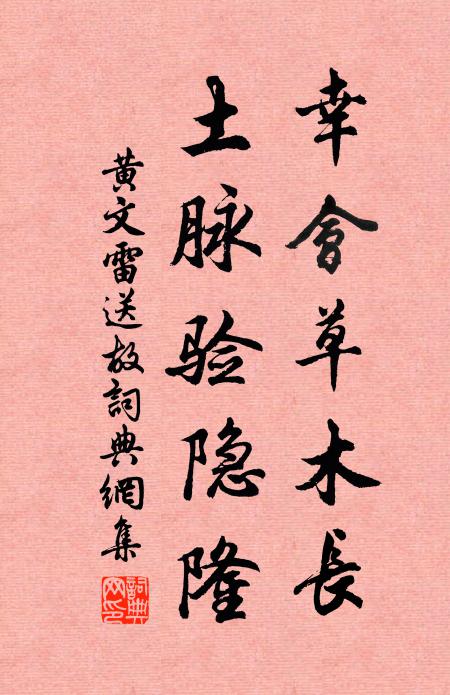 幸會草木長
土脉验隐隆
黄文雷送故詞典網集
詞典網印